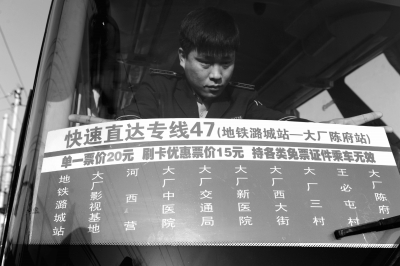 快速直达专线47(地铁潞城站—大厂陈府站)
单一票价20元 刷卡优惠票价15元 持各类免票证件乘车无效
地铁潞城站
大厂影视基地
河西营
大厂中医院
大厂交通局
大厂新医院
大厂西大街
大厂三村
王必屯村
大厂陈府